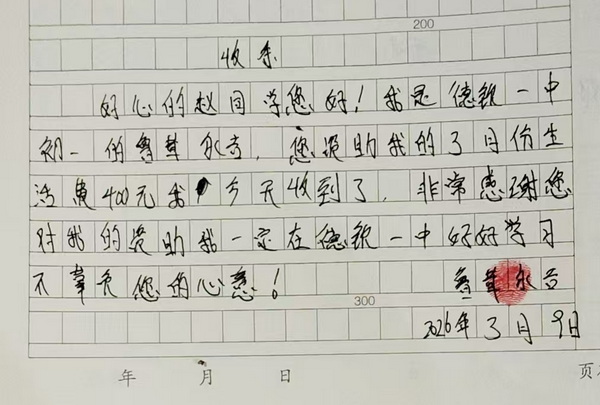 200
收条
好心的赵同学您好！我是德钦一中
初一的鲁茸永吉，您资助我的3月份生
活费400元我今天收到了，非常感谢您
对我的资助我一定在德钦一中好好学习
不辜负您的心意！鲁茸永吉
300
2026年3月9日
年 月 日
页